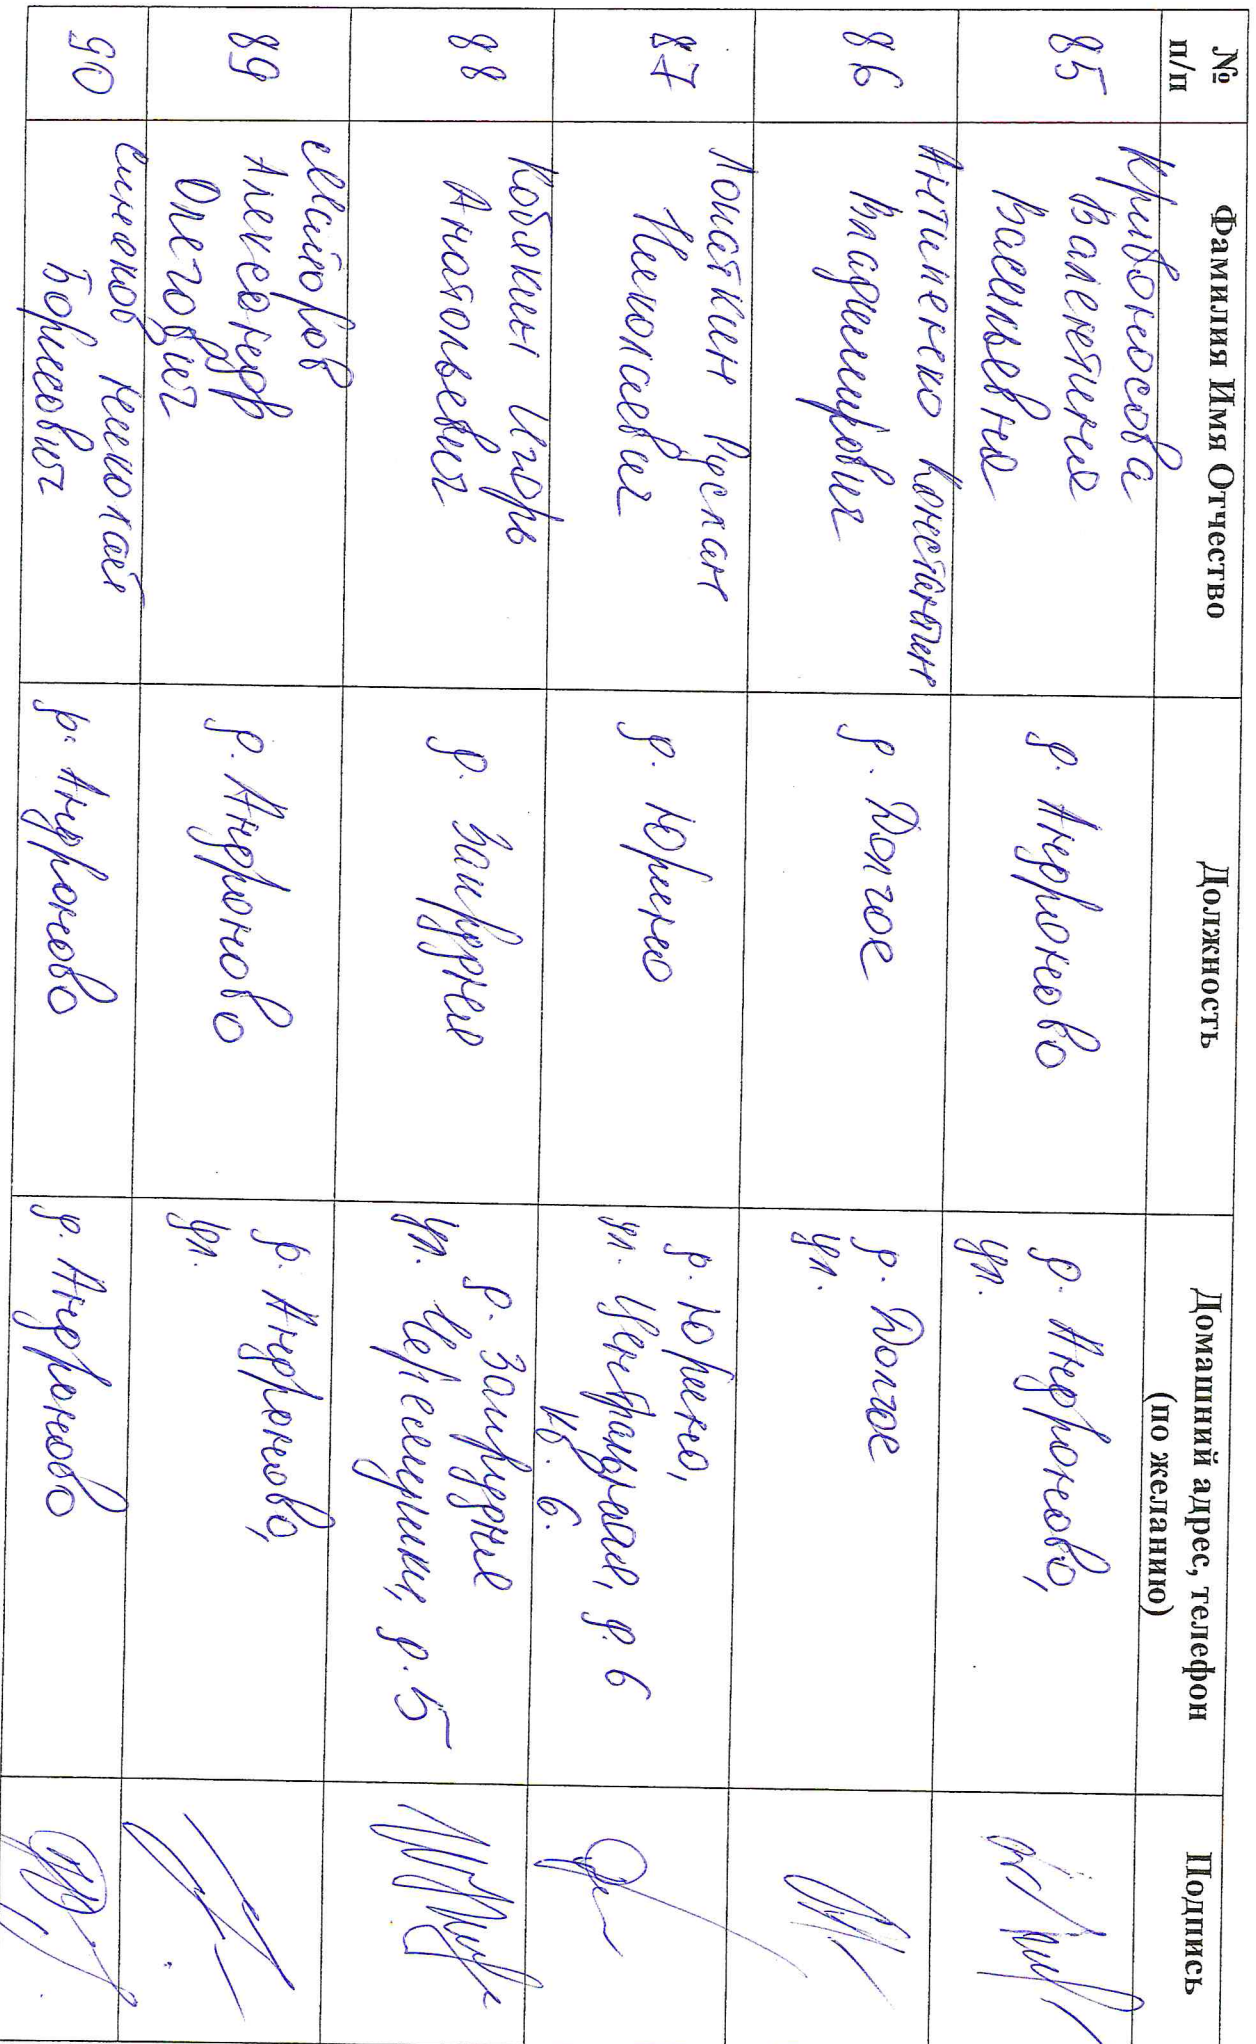 №
п/п
Фамилия Имя Отчество
Должность
Домашний адрес, телефон
(по желанию)
Подпись
85
Кривоносова
Валентина
Васильевна
д. Андроново
д. Андроново,
ул.
86
Антипенко Константин
Владимирович
д. Долгое
д. Долгое
ул.
87
Лопаткин Руслан
Николаевич
д. Юрино
д. Юрино,
ул. Центральная, д. 6
кв. 6.
88
Кобякин Игорь
Анатольевич
д. Запрудня
д. Запрудня
ул. д. 5
89
Майоров
Александр
Олегович
д. Андроново
д. Андроново,
ул.
90
Синяков Николай
Борисович
д. Андроново
д. Андроново